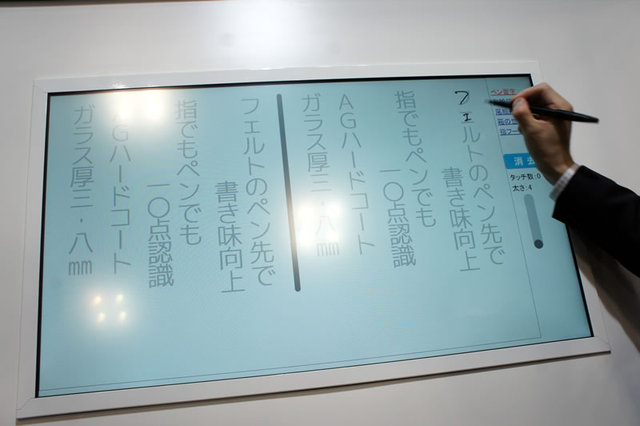 フェルトのペン先で
書き味向上
指でもペンでも
一〇点認識
AGハードコート
ガラス厚三・八mm
フェルトのペン先で
書き味向上
指でもペンでも
一〇点認識
AGハードコート
ガラス厚三・八mm
消去
タッチ数:0
太さ:4